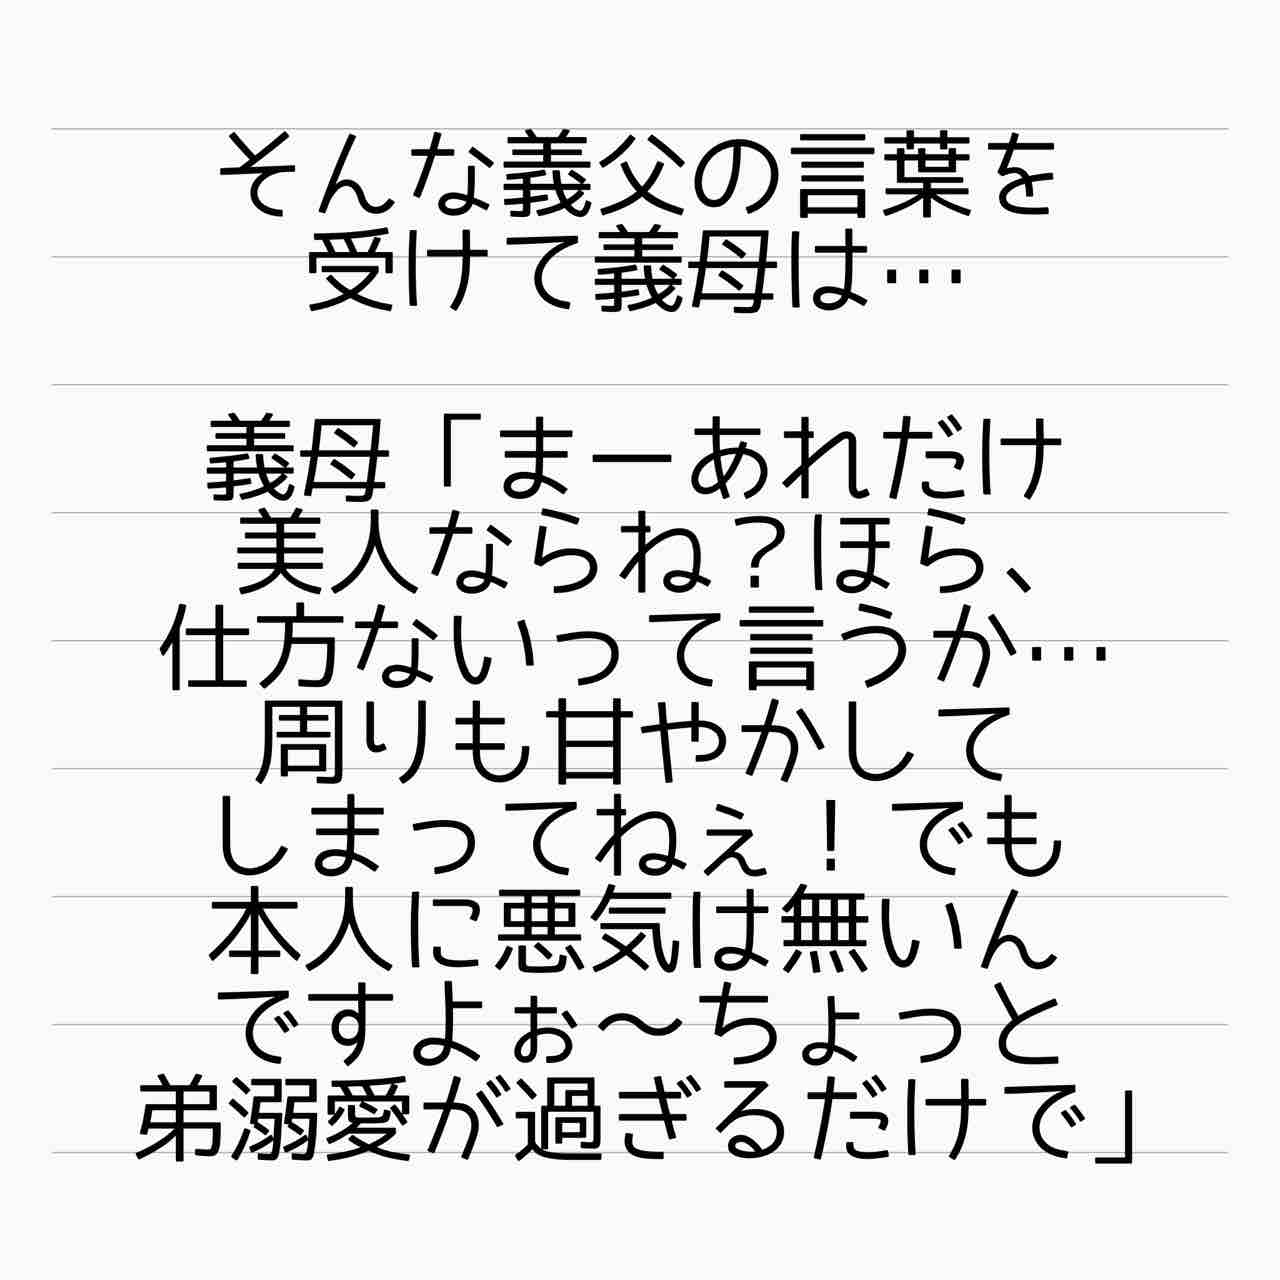 そんな義父の言葉を
受けて義母は…
義母「まーあれだけ
美人ならね？ほら、
仕方ないって言うか…
周りも甘やかして
しまってねぇ！でも
本人に悪気は無いん
ですよぉ〜ちょっと
弟溺愛が過ぎるだけで」